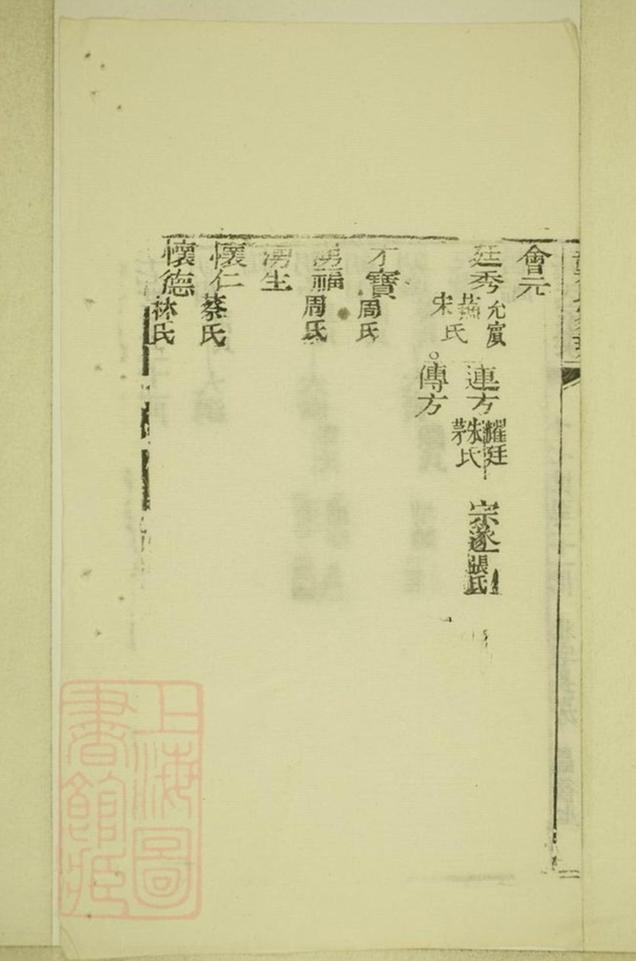 會元
廷秀 允賓 蕭 宋氏
連方 耀廷 朱 茅氏
宗遂 張氏
傳方
才寶 周氏
湧福 周氏
湧生
懷仁 蔡氏
懷德 林氏
上海圖書館藏